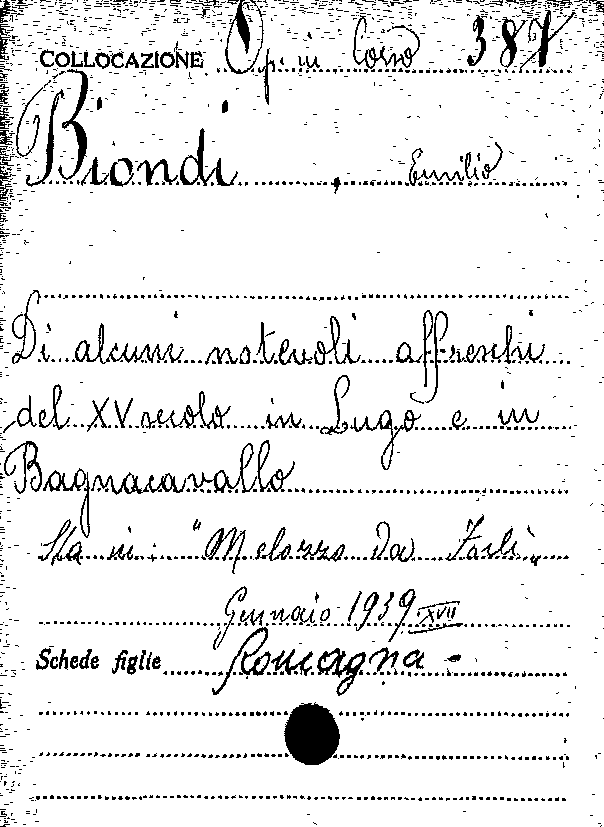 COLLOCAZIONE Op. in Corso 387
Biondi, Emilio
Di alcuni notevoli affreschi
del XV secolo in Lugo e in
Bagnacavallo
Sta in: "Melozzo da Forlì"
Gennaio 1939 XVII
Schede figlie Romagna -